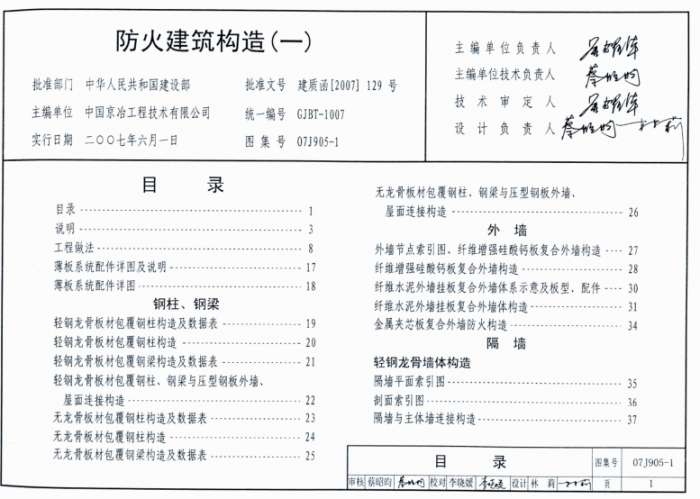 防火建筑构造(一)
批准部门 中华人民共和国建设部 批准文号 建质函[2007] 129 号
主编单位 中国京冶工程技术有限公司 统一编号 GJBT-1007
实行日期 二〇〇七年六月一日 图集号 07J905-1
主编单位负责人
主编单位技术负责人
技术审定人
设计负责人
目 录
目录 1
说明 3
工程做法 8
薄板系统配件详图及说明 17
薄板系统配件详图 18
钢柱、钢梁
轻钢龙骨板材包覆钢柱构造及数据表 19
轻钢龙骨板材包覆钢柱构造 20
轻钢龙骨板材包覆钢梁构造及数据表 21
轻钢龙骨板材包覆钢柱、钢梁与压型钢板外墙、
屋面连接构造 22
无龙骨板材包覆钢柱构造及数据表 23
无龙骨板材包覆钢柱构造 24
无龙骨板材包覆钢梁构造及数据表 25
无龙骨板材包覆钢柱、钢梁与压型钢板外墙、
屋面连接构造 26
外 墙
外墙节点索引图、纤维增强硅酸钙板复合外墙构造 27
纤维增强硅酸钙板复合外墙构造 28
纤维水泥外墙挂板复合外墙体系示意及板型、配件 30
纤维水泥外墙挂板复合外墙体构造 31
金属夹芯板复合外墙防火构造 34
隔 墙
轻钢龙骨墙体构造
隔墙平面索引图 35
剖面索引图 36
隔墙与主体墙连接构造 37
目 录 图集号 07J905-1
审核 蔡昭昀 校对 李晓媛 设计 林莉 页 1